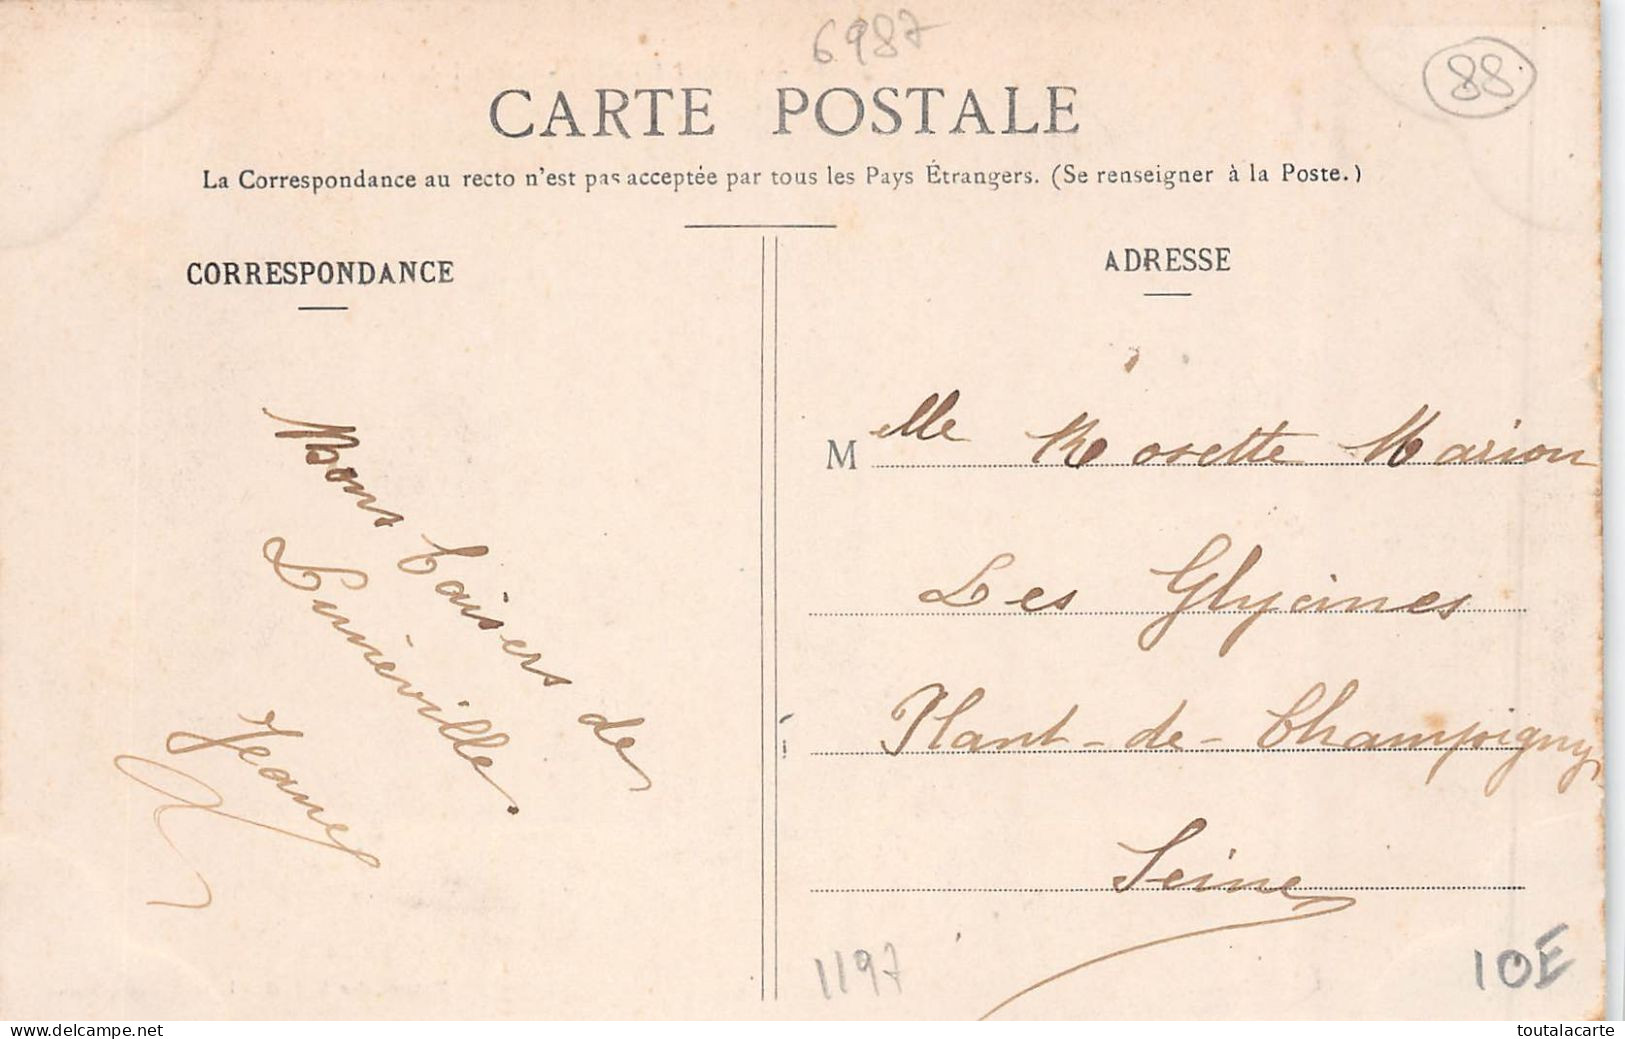 6987
88
CARTE POSTALE
La Correspondance au recto n'est pas acceptée par tous les Pays Étrangers. (Se renseigner à la Poste.)
CORRESPONDANCE
Bons baisers de
Lunéville.
Jeanne
ADRESSE
Melle Rosette Marion
Les Glycines
Plant-de-Champigny
Seine
1197
10E
www.delcampe.net
toutalacarte